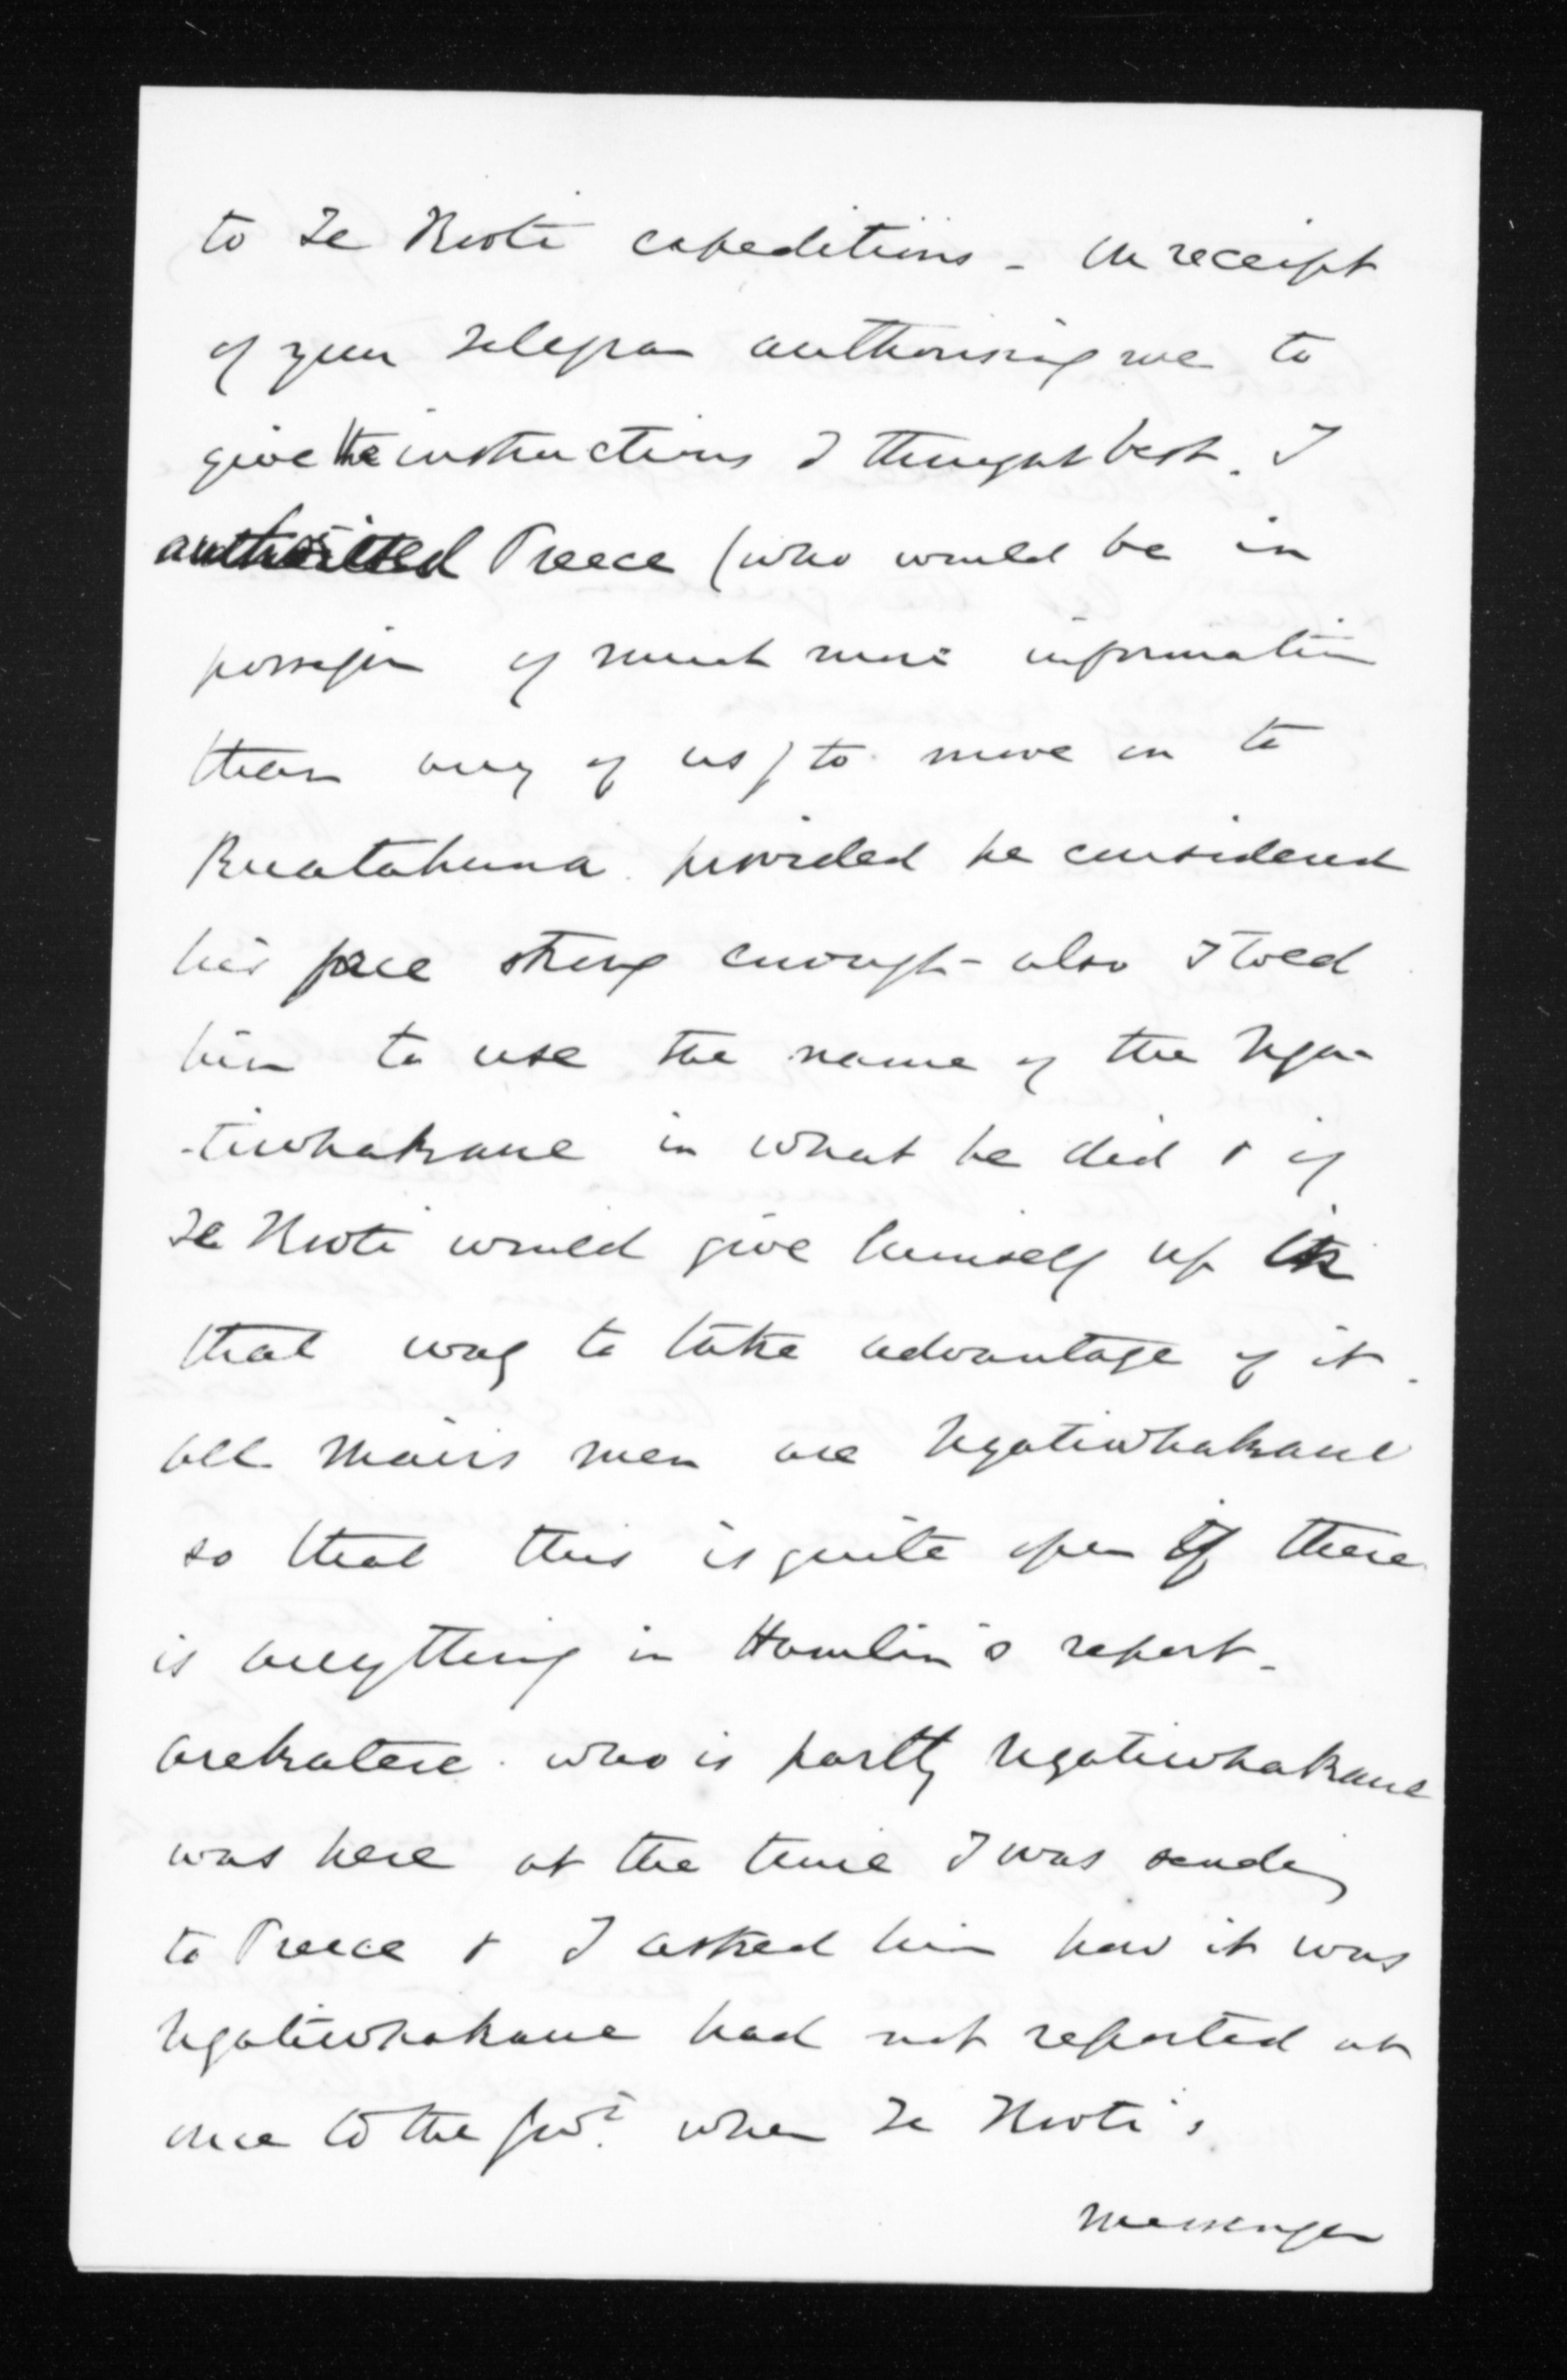 to Te Kooti expeditions - On receipt
of your telegram authorising me to
give the instructions I thought best. I
authorised Preece (who would be in
possession of much more information
than any of us) to move on to
Ruatahuna provided he considered
his force strong enough - also I told
him to use the name of the Nga-
-tiwhakaue in what he did & if
Te Kooti would give himself up in
that way to take advantage of it.
All Mairs men are Ngatiwhakaue
so that this is quite open if there
is anything in Hamlin's report -
Arekatera who is partly Ngatiwhakaue
was here at the time I was sending
to Preece & I asked him how it was
Ngatiwhakaue had not reported at
once to the Govt. when Te Kooti's
messenger